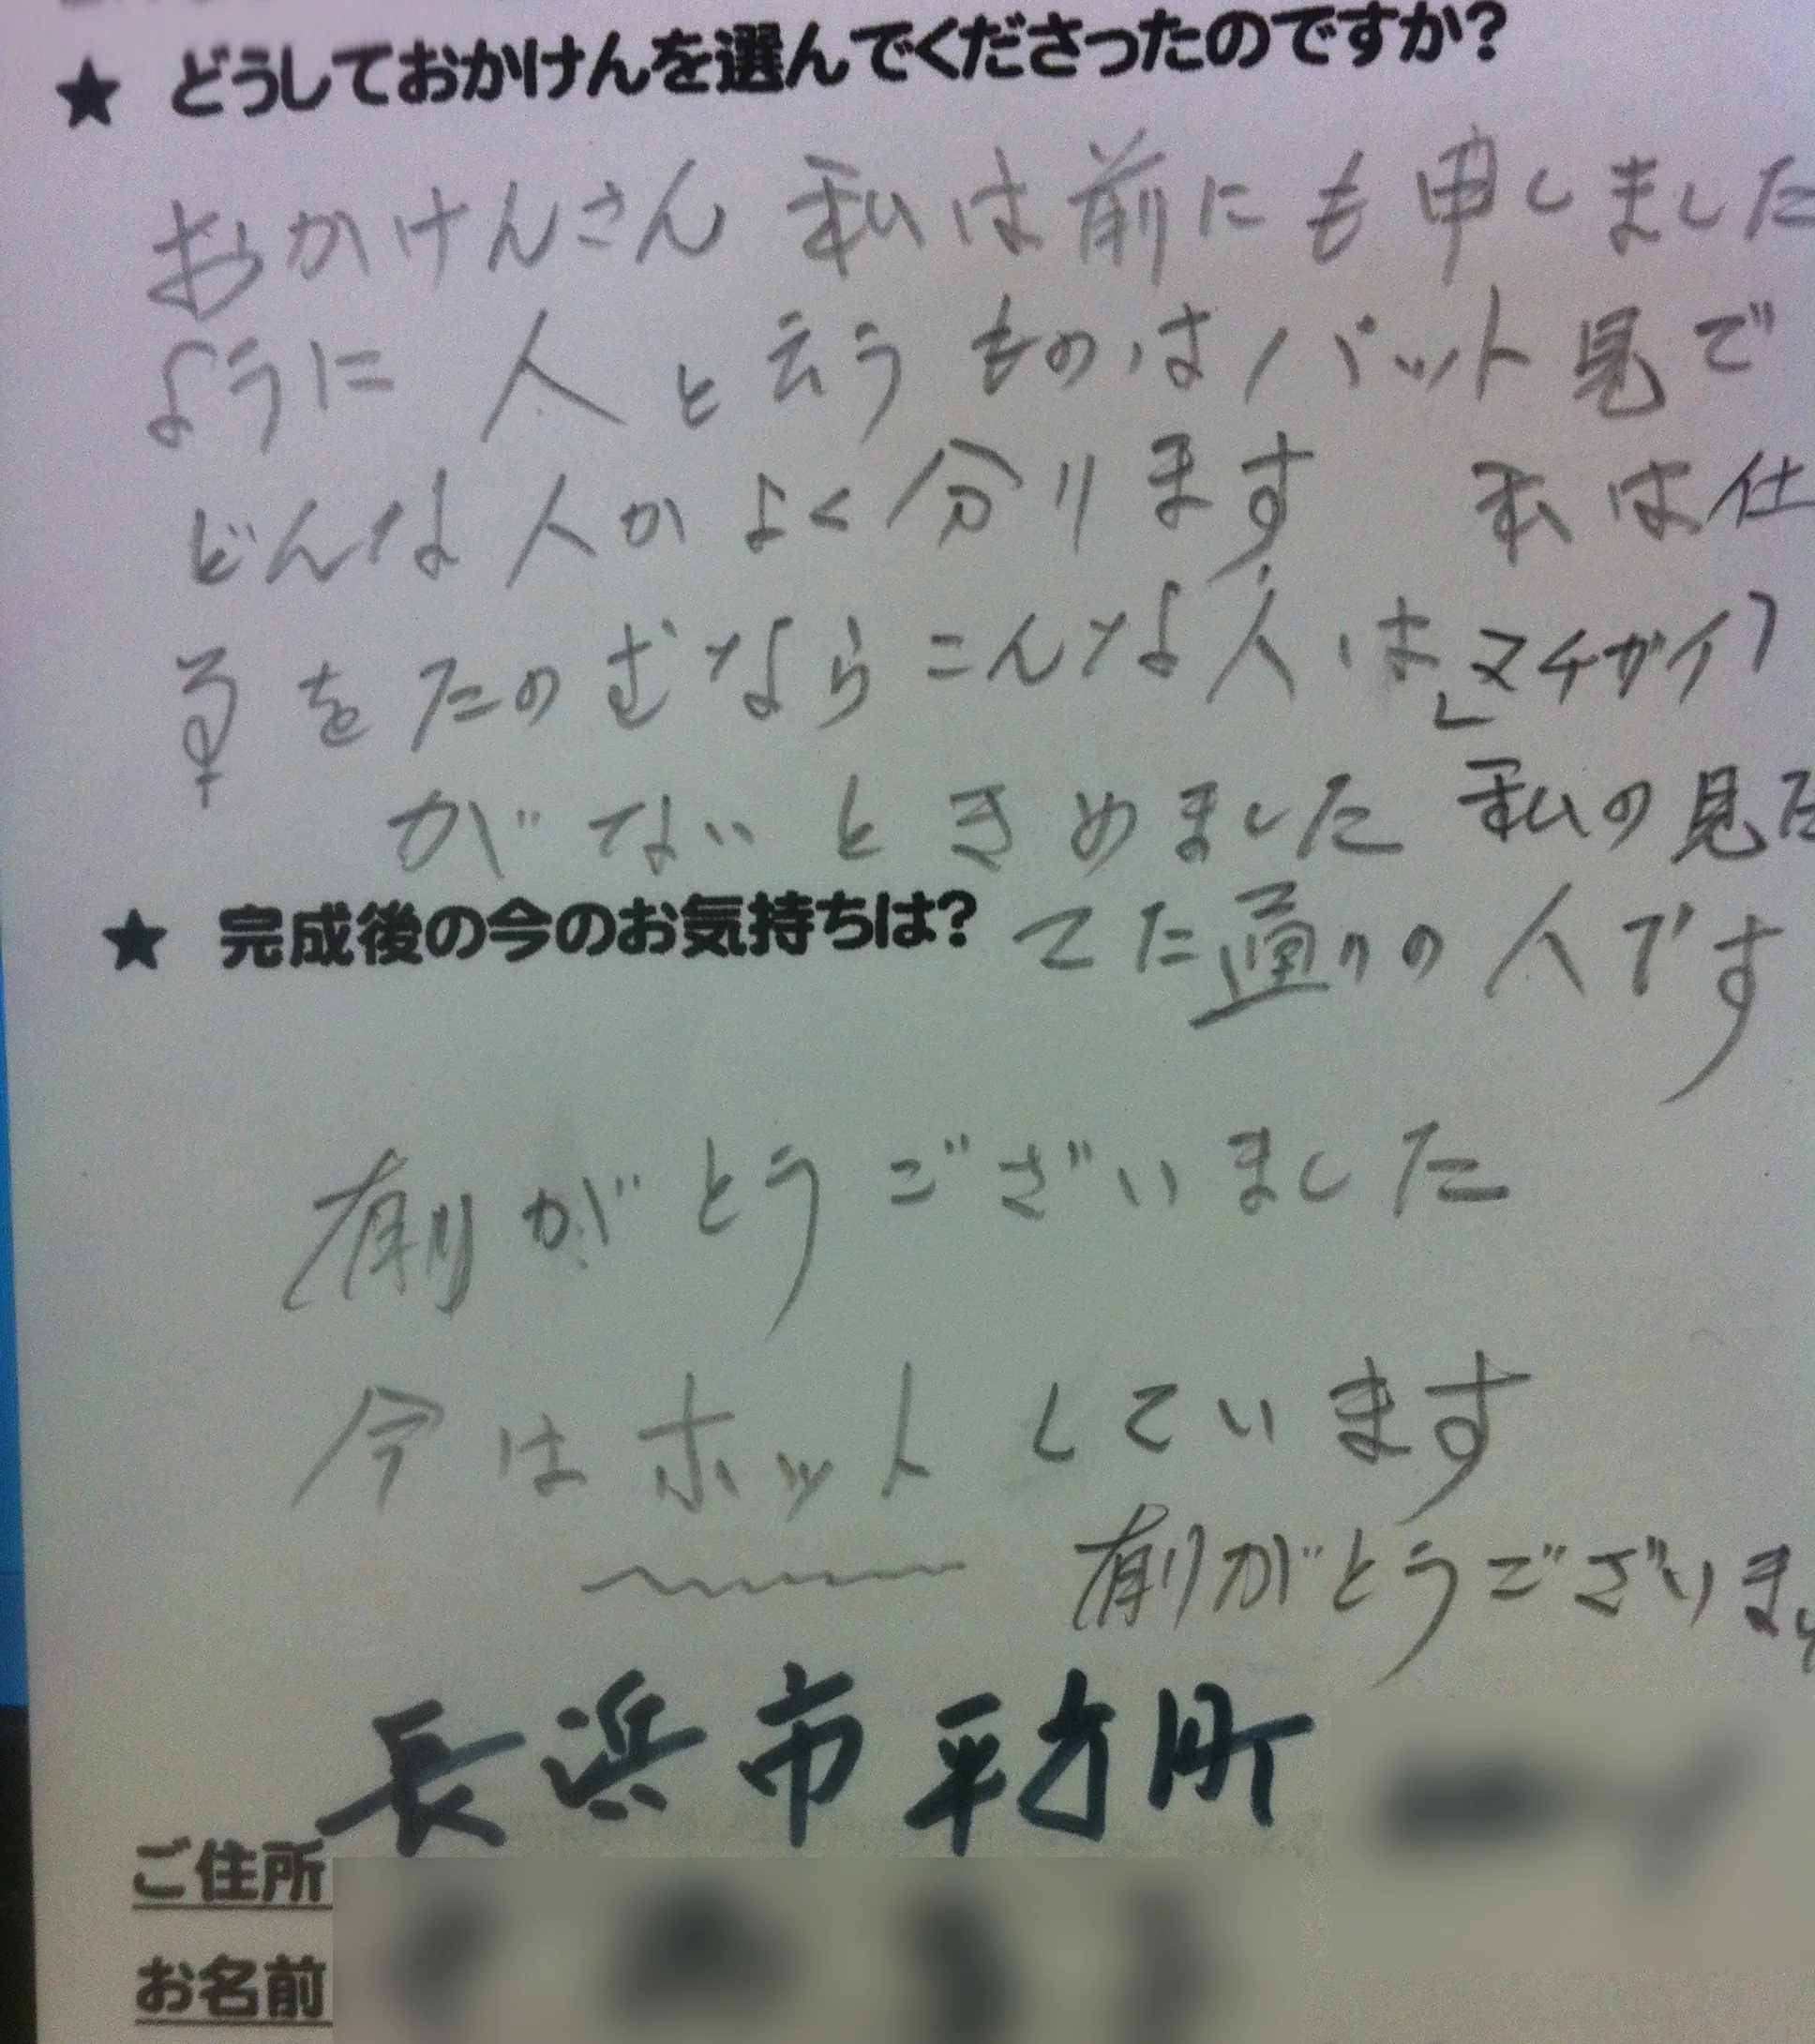 ★ どうしておかけんを選んでくださったのですか?
おかけんさん 私は前にも申しました
ように 人と云うものはパット見で
どんな人かよく分ります 私は仕
事をたのむならこんな人は「マチガイ」
がないときめました 私の見た
てた通りの人です
★ 完成後の今のお気持ちは?
有りがとうございました
今はホットしています
有りがとうございま
長浜市平方町
ご住所
お名前